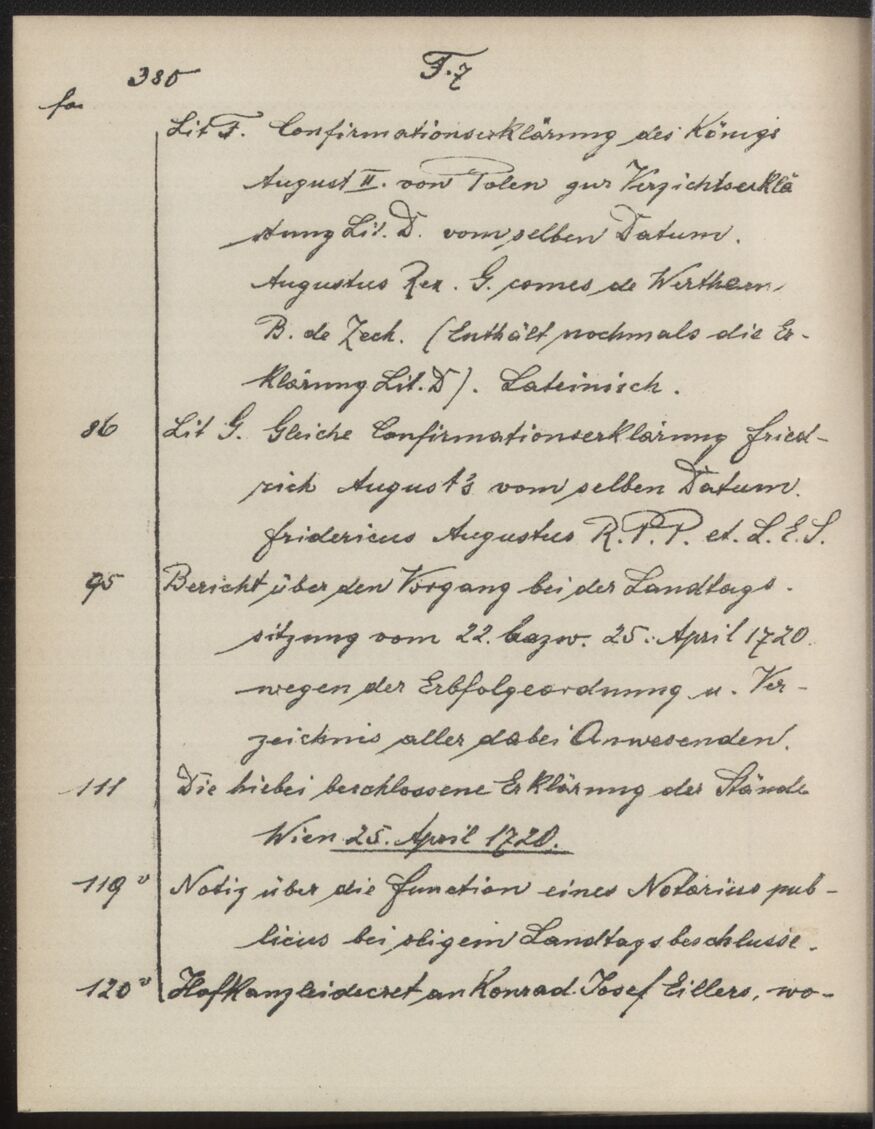 380 F. 7
fo.
Lit F. Confirmationserklärung des Königs
August II. von Polen zur Verzichtserklä
rung Lit. D. vom selben Datum.
Augustus Rex. G. comes de Werthern,
B. de Zech. (Enthält nochmals die Er-
klärung Lit. D). Lateinisch.
86 Lit G. Gleiche Confirmationserklärung Fried-
rich August's vom selben Datum.
Fridericus Augustus R. P. P. et. L. E. S.
95 Bericht über den Vorgang bei der Landtags-
sitzung vom 22. bezw. 25. April 1720.
wegen der Erbfolgeordnung u. Ver-
zeichnis aller dabei Anwesenden.
111 Die hiebei beschlossene Erklärung der Stände
Wien 25. April 1720.
119v Notiz über die Function eines Notarius pub-
licus bei obigem Landtagsbeschlusse.
120v Hofkanzleidecret an Konrad Josef Eillers, wo-